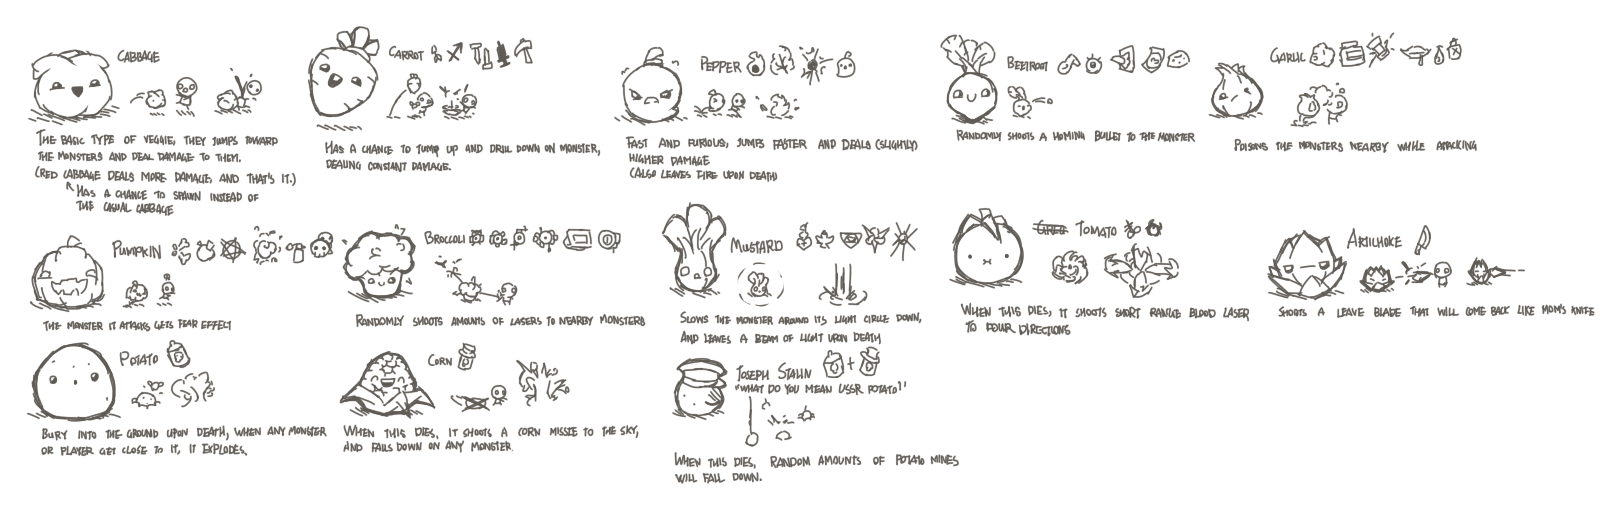 CABBAGE
THE BASIC TYPE OF VEGGIE, THEY JUMPS TOWARD
THE MONSTERS AND DEAL DAMAGE TO THEM.
(RED CABBAGE DEALS MORE DAMAGE, AND THAT'S IT.)
HAS A CHANCE TO SPAWN INSTEAD OF
THE CASUAL CABBAGE
CARROT
HAS A CHANCE TO JUMP UP AND DRILL DOWN ON MONSTER,
DEALING CONSTANT DAMAGE.
PEPPER
FAST AND FURIOUS, JUMPS FASTER AND DEALS (SLIGHTLY)
HIGHER DAMAGE
(ALSO LEAVES FIRE UPON DEATH)
BEETROOT
RANDOMLY SHOOTS A HOMING BULLET TO THE MONSTER
GARLIC
POISONS THE MONSTERS NEARBY WHILE ATTACKING
PUMPKIN
THE MONSTER IT ATTACKS GETS FEAR EFFECT
BROCCOLI
RANDOMLY SHOOTS AMOUNTS OF LASERS TO NEARBY MONSTERS
MUSTARD
SLOWS THE MONSTER AROUND ITS LIGHT CIRCLE DOWN,
AND LEAVES A BEAM OF LIGHT UPON DEATH
TOMATO
WHEN THIS DIES, IT SHOOTS SHORT RANGE BLOOD LASER
TO FOUR DIRECTIONS
ARTICHOKE
SHOOTS A LEAVE BLADE THAT WILL COME BACK LIKE MOM'S KNIFE
POTATO
BURY INTO THE GROUND UPON DEATH, WHEN ANY MONSTER
OR PLAYER GET CLOSE TO IT, IT EXPLODES.
CORN
WHEN THIS DIES, IT SHOOTS A CORN MISSLE TO THE SKY,
AND FALLS DOWN ON ANY MONSTER.
JOSEPH STALIN
"WHAT DO YOU MEAN USSR POTATO?!"
WHEN THIS DIES, RANDOM AMOUNTS OF POTATO MINES
WILL FALL DOWN.